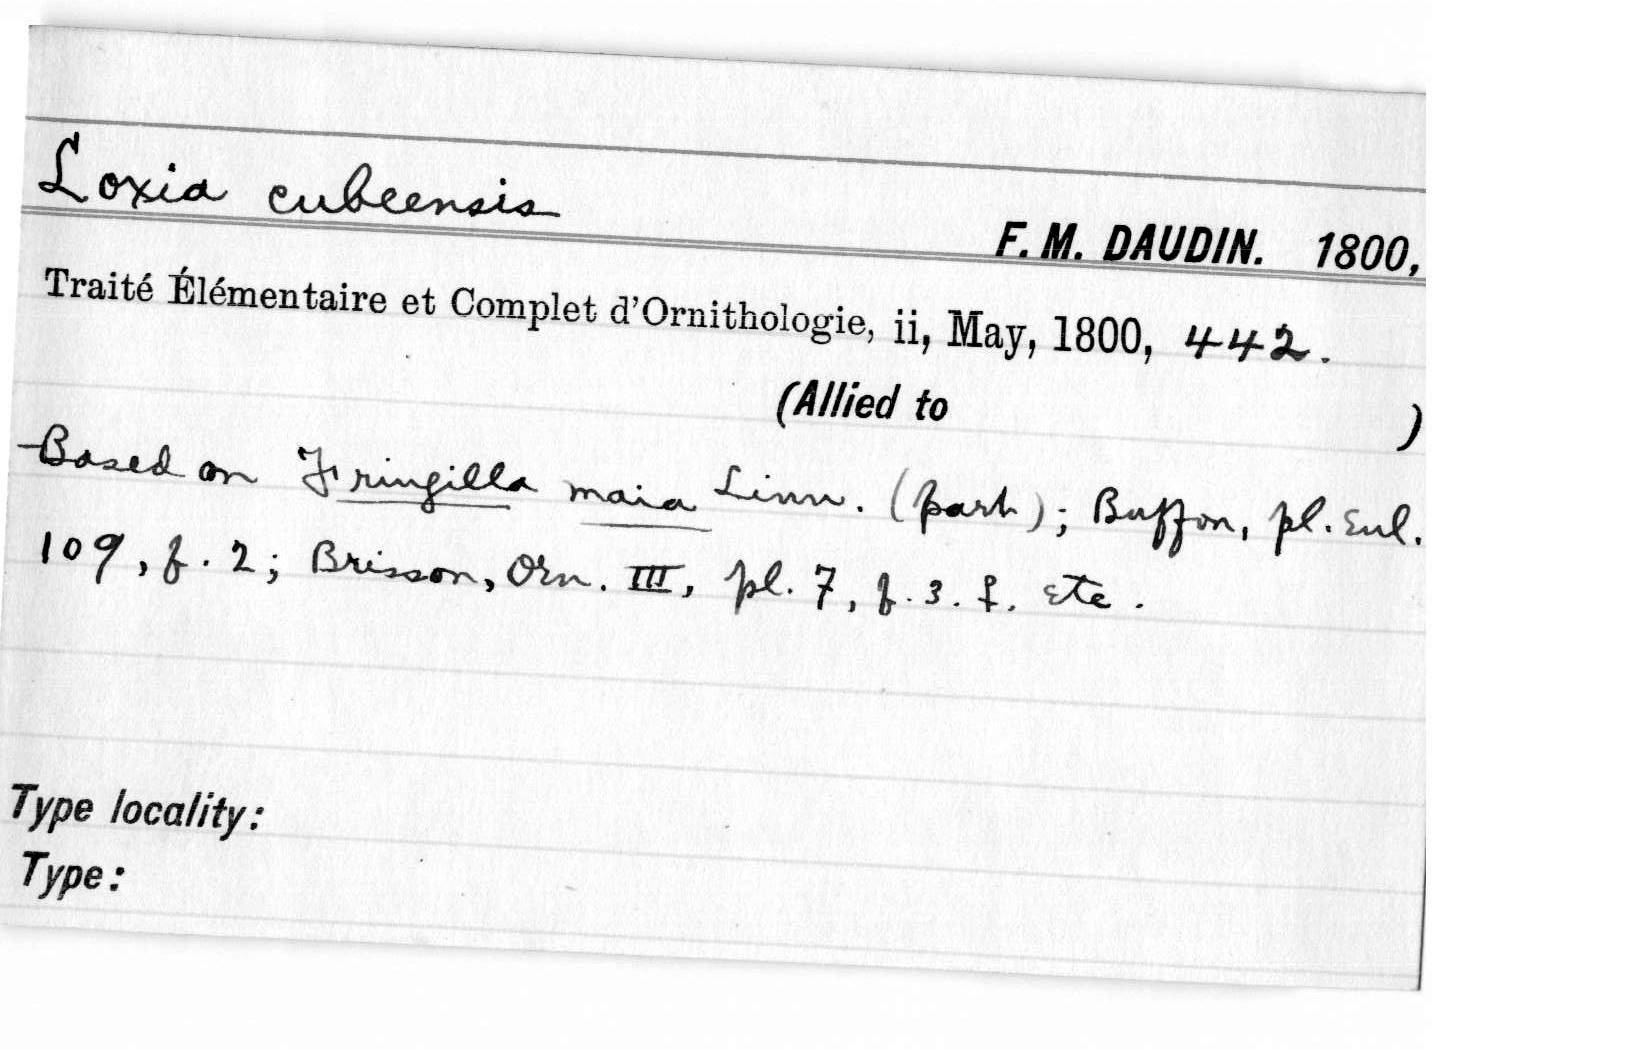 Loxia cubeensis
F. M. DAUDIN. 1800,
Traité Élémentaire et Complet d'Ornithologie, ii, May, 1800, 442.
(Allied to )
Based on Fringilla maia Linn. (part); Buffon, pl. Enl.
109, f. 2; Brisson, Orn. III, pl. 7, f. 3. ♀. etc.
Type locality:
Type: